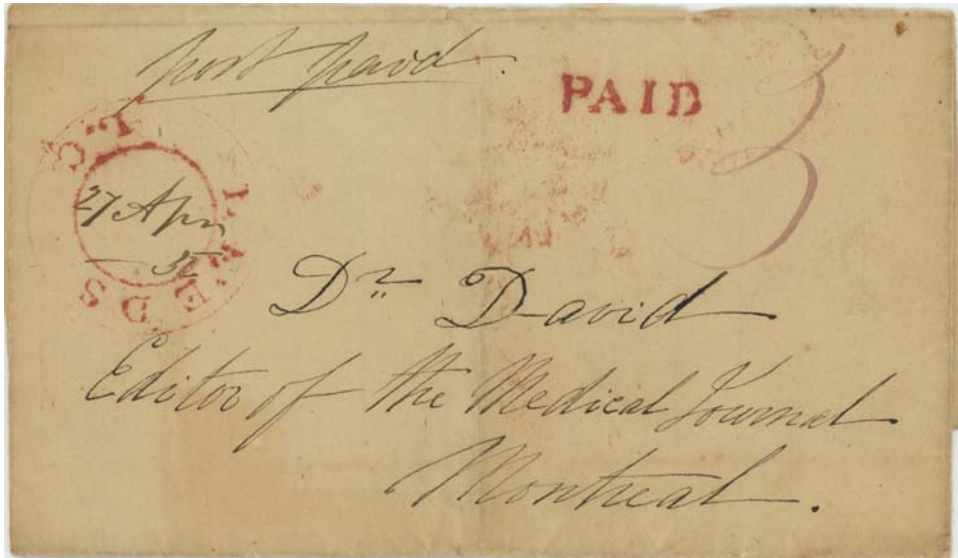 post paid.
PAID
3
LEEDS
27 Apr
— 52
Dr David
Editor of the Medical Journal
Montreal.